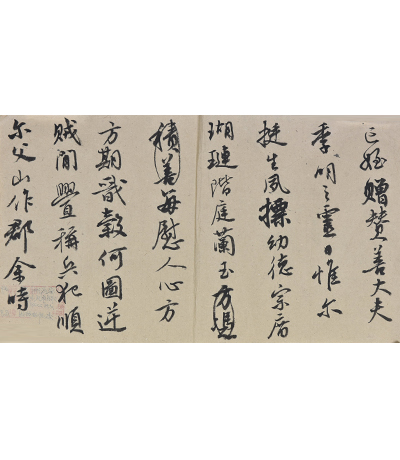 亡姪贈贊善大夫
季明之靈曰惟尔
挺生夙標幼德宗庿
瑚璉階庭蘭玉方憑
積善每慰人心方
方期戩穀何圖逆
賊閒舋稱兵犯順
尔父山作郡余時